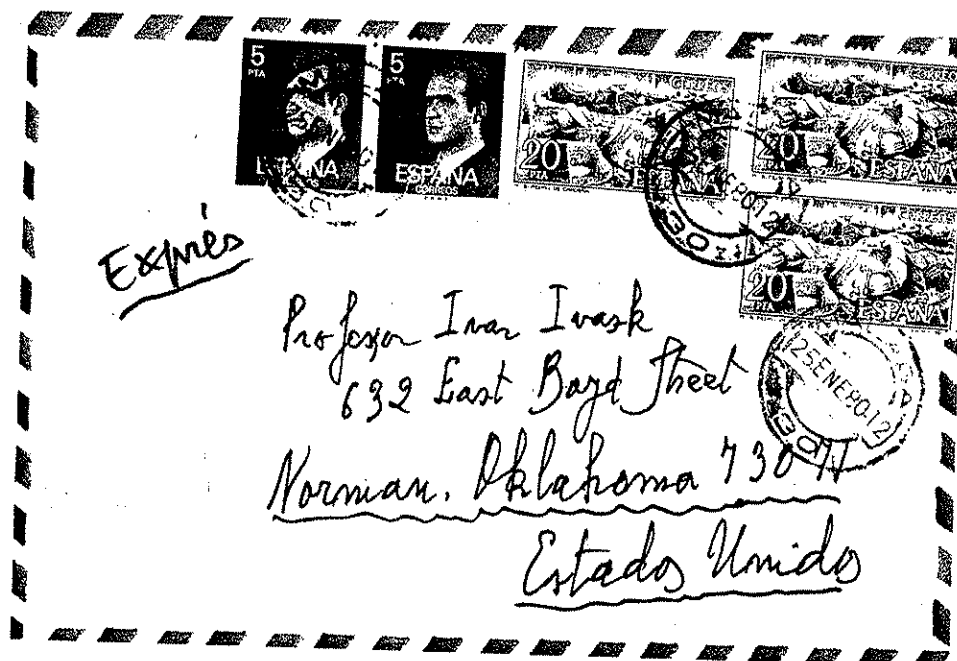 5 PTA
5 PTA
ESPAÑA
CORREOS
CORREOS
20 PTA
ESPAÑA
CORREOS
20 PTA
ESPAÑA
20 PTA
ESPAÑA
25 ENE 80.12
Exprés
Professor Ivar Ivask
632 East Boyd Street
Norman. Oklahoma 73071
Estados Unidos